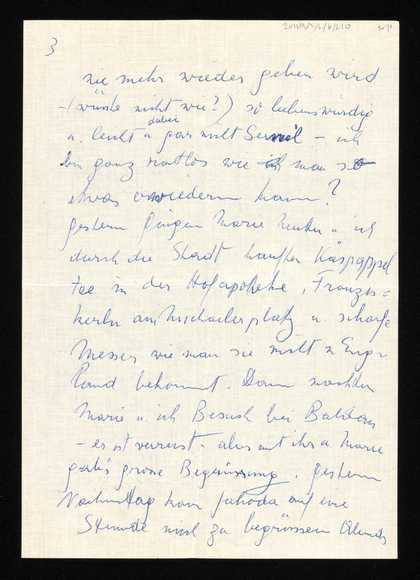 3
nie mehr wieder geben wird
(wüsste nicht wie?) so liebenswürdig
u. leicht dabei
gar mit – ich
bin ganz ratlos wie man so
etwas erwiedern kann?
gestern gingen Marie u ich
durch die Stadt kauften Käspappel
tee in der Hofapotheke, Franzis=
kerln am Michaelerplatz u scharfe
Messer wie man sie nicht in Engl
land bekommt. Dann machten
Marie u. ich Besuch bei
– er ist verreist. aber mit ihr u Marie
gab's grosse Begrüssung. gestern
Nachmittag kam Jahoda auf eine
Stunde mich zu begrüssen Abends